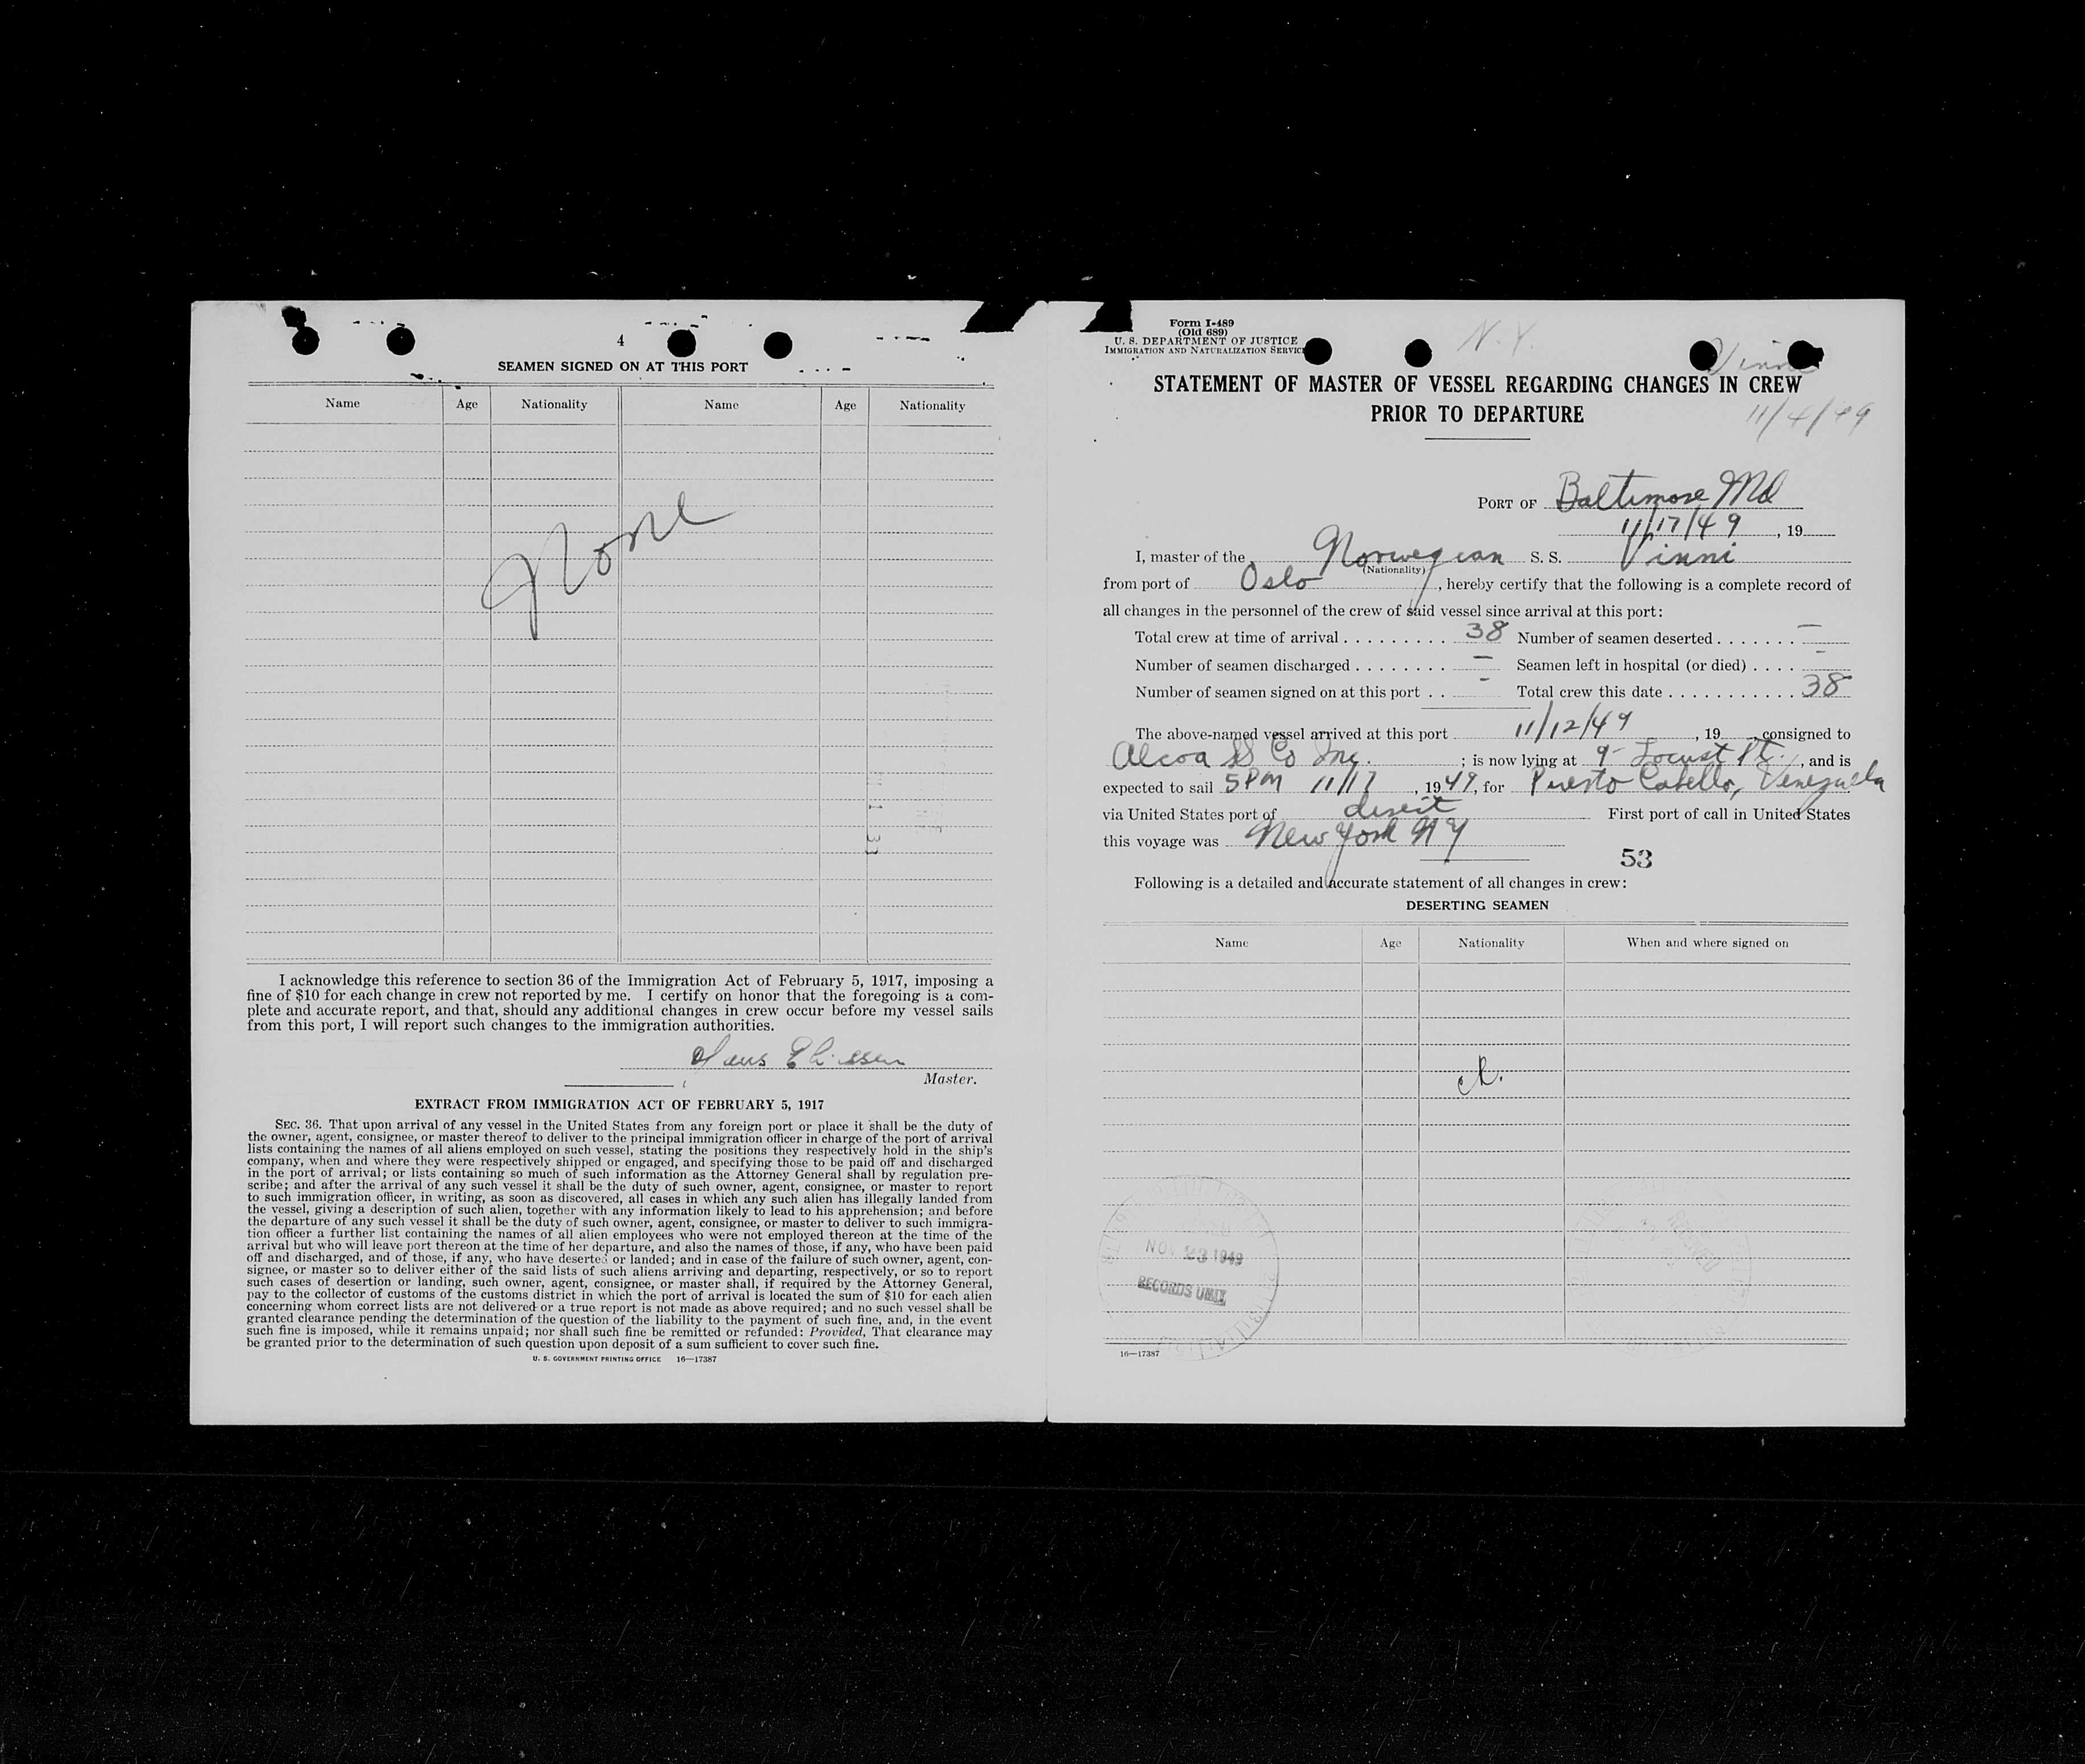 4
SEAMEN SIGNED ON AT THIS PORT
Name Age Nationality Name Age Nationality
None
I acknowledge this reference to section 36 of the Immigration Act of February 5, 1917, imposing a
fine of $10 for each change in crew not reported by me. I certify on honor that the foregoing is a com-
plete and accurate report, and that, should any additional changes in crew occur before my vessel sails
from this port, I will report such changes to the immigration authorities.
Master.
EXTRACT FROM IMMIGRATION ACT OF FEBRUARY 5, 1917
SEC. 36. That upon arrival of any vessel in the United States from any foreign port or place it shall be the duty of
the owner, agent, consignee, or master thereof to deliver to the principal immigration officer in charge of the port of arrival
lists containing the names of all aliens employed on such vessel, stating the positions they respectively hold in the ship's
company, when and where they were respectively shipped or engaged, and specifying those to be paid off and discharged
in the port of arrival; or lists containing so much of such information as the Attorney General shall by regulation pre-
scribe; and after the arrival of any such vessel it shall be the duty of such owner, agent, consignee, or master to report
to such immigration officer, in writing, as soon as discovered, all cases in which any such alien has illegally landed from
the vessel, giving a description of such alien, together with any information likely to lead to his apprehension; and before
the departure of any such vessel it shall be the duty of such owner, agent, consignee, or master to deliver to such immigra-
tion officer a further list containing the names of all alien employees who were not employed thereon at the time of the
arrival but who will leave port thereon at the time of her departure, and also the names of those, if any, who have been paid
off and discharged, and of those, if any, who have deserted or landed; and in case of the failure of such owner, agent, con-
signee, or master so to deliver either of the said lists of such aliens arriving and departing, respectively, or so to report
such cases of desertion or landing, such owner, agent, consignee, or master shall, if required by the Attorney General,
pay to the collector of customs of the customs district in which the port of arrival is located the sum of $10 for each alien
concerning whom correct lists are not delivered or a true report is not made as above required; and no such vessel shall be
granted clearance pending the determination of the question of the liability to the payment of such fine, and, in the event
such fine is imposed, while it remains unpaid; nor shall such fine be remitted or refunded: Provided, That clearance may
be granted prior to the determination of such question upon deposit of a sum sufficient to cover such fine.
U. S. GOVERNMENT PRINTING OFFICE 16—17387
Form I-489
(Old 689)
U. S. DEPARTMENT OF JUSTICE
IMMIGRATION AND NATURALIZATION SERVICE
N.Y.
Vinni
STATEMENT OF MASTER OF VESSEL REGARDING CHANGES IN CREW
PRIOR TO DEPARTURE
11/4/49
PORT OF Baltimore Md
11/17/49, 19
I, master of the Norwegian S. S. Vinni
(Nationality)
from port of Oslo, hereby certify that the following is a complete record of
all changes in the personnel of the crew of said vessel since arrival at this port:
Total crew at time of arrival . . . . . . . . . 38 Number of seamen deserted . . . . . . . —
Number of seamen discharged . . . . . . . . — Seamen left in hospital (or died) . . . . -
Number of seamen signed on at this port . . - Total crew this date . . . . . . . . . . . 38
The above-named vessel arrived at this port 11/12/49, 19 , consigned to
Alcoa SS Co Inc. ; is now lying at 9- Locust Pt., and is
expected to sail 5PM 11/17, 1949, for Puerto Cabello, Venezuela
via United States port of direct First port of call in United States
this voyage was New York NY
53
Following is a detailed and accurate statement of all changes in crew:
DESERTING SEAMEN
Name Age Nationality When and where signed on
NOV 23 1949
RECORDS UNIT
RECEIVED
16—17387